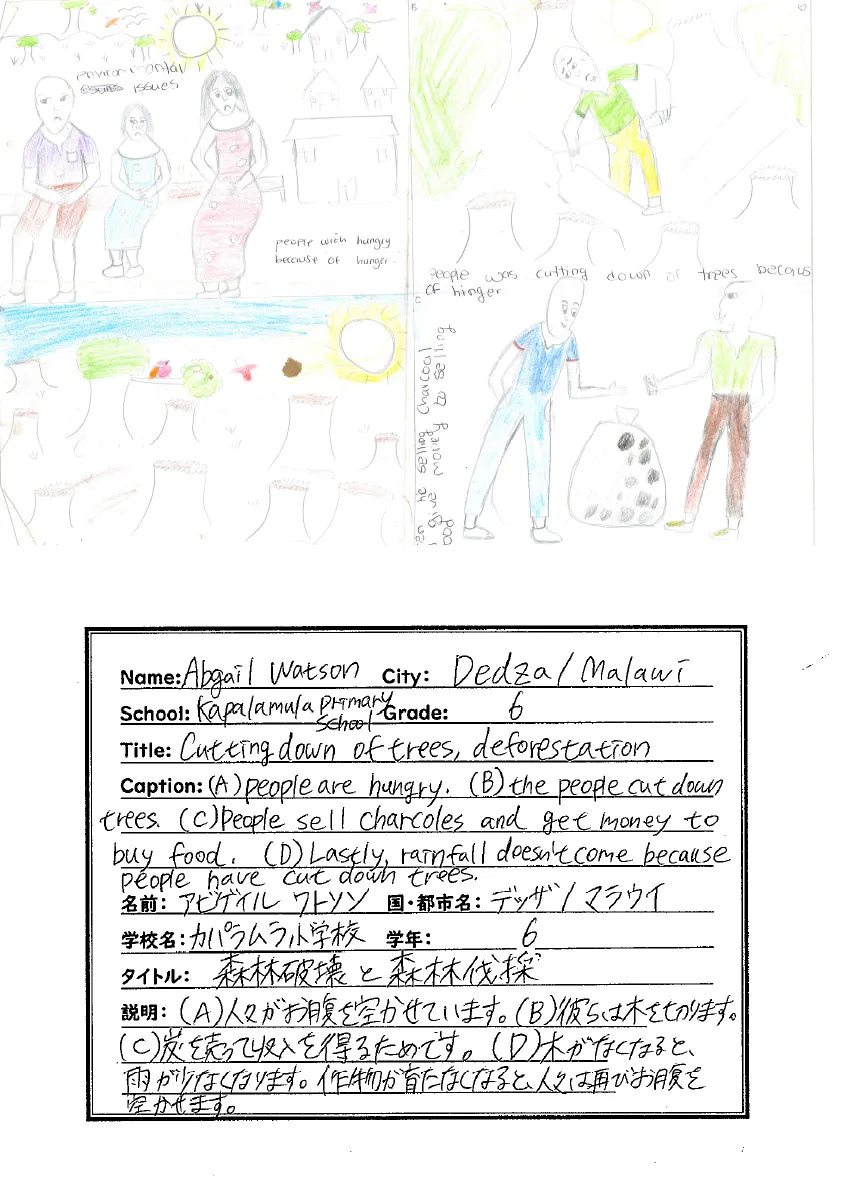 environmental
issues
people with hungry
because of hunger.
B
People was cutting down of trees becaus
of hinger
he selling charcoal
give money to selling
Name: Abgail Watson City: Dedza/Malawi
School: Kapalamula primary School Grade: 6
Title: Cutting down of trees, deforestation
Caption: (A) people are hungry. (B) the people cut down
trees. (C) People sell charcoles and get money to
buy food. (D) Lastly, rainfall doesn't come because
people have cut down trees.
名前: アビゲイル ワトソン 国・都市名: デッザ/マラウイ
学校名: カパラムラ小学校 学年: 6
タイトル: 森林破壊と森林伐採
説明: (A)人々がお腹を空かせています。(B)彼らは木を切ります。
(C)炭を売って収入を得るためです。(D)木がなくなると、
雨が少なくなります。作物が育たなくなると、人々は再びお腹を
空かせます。